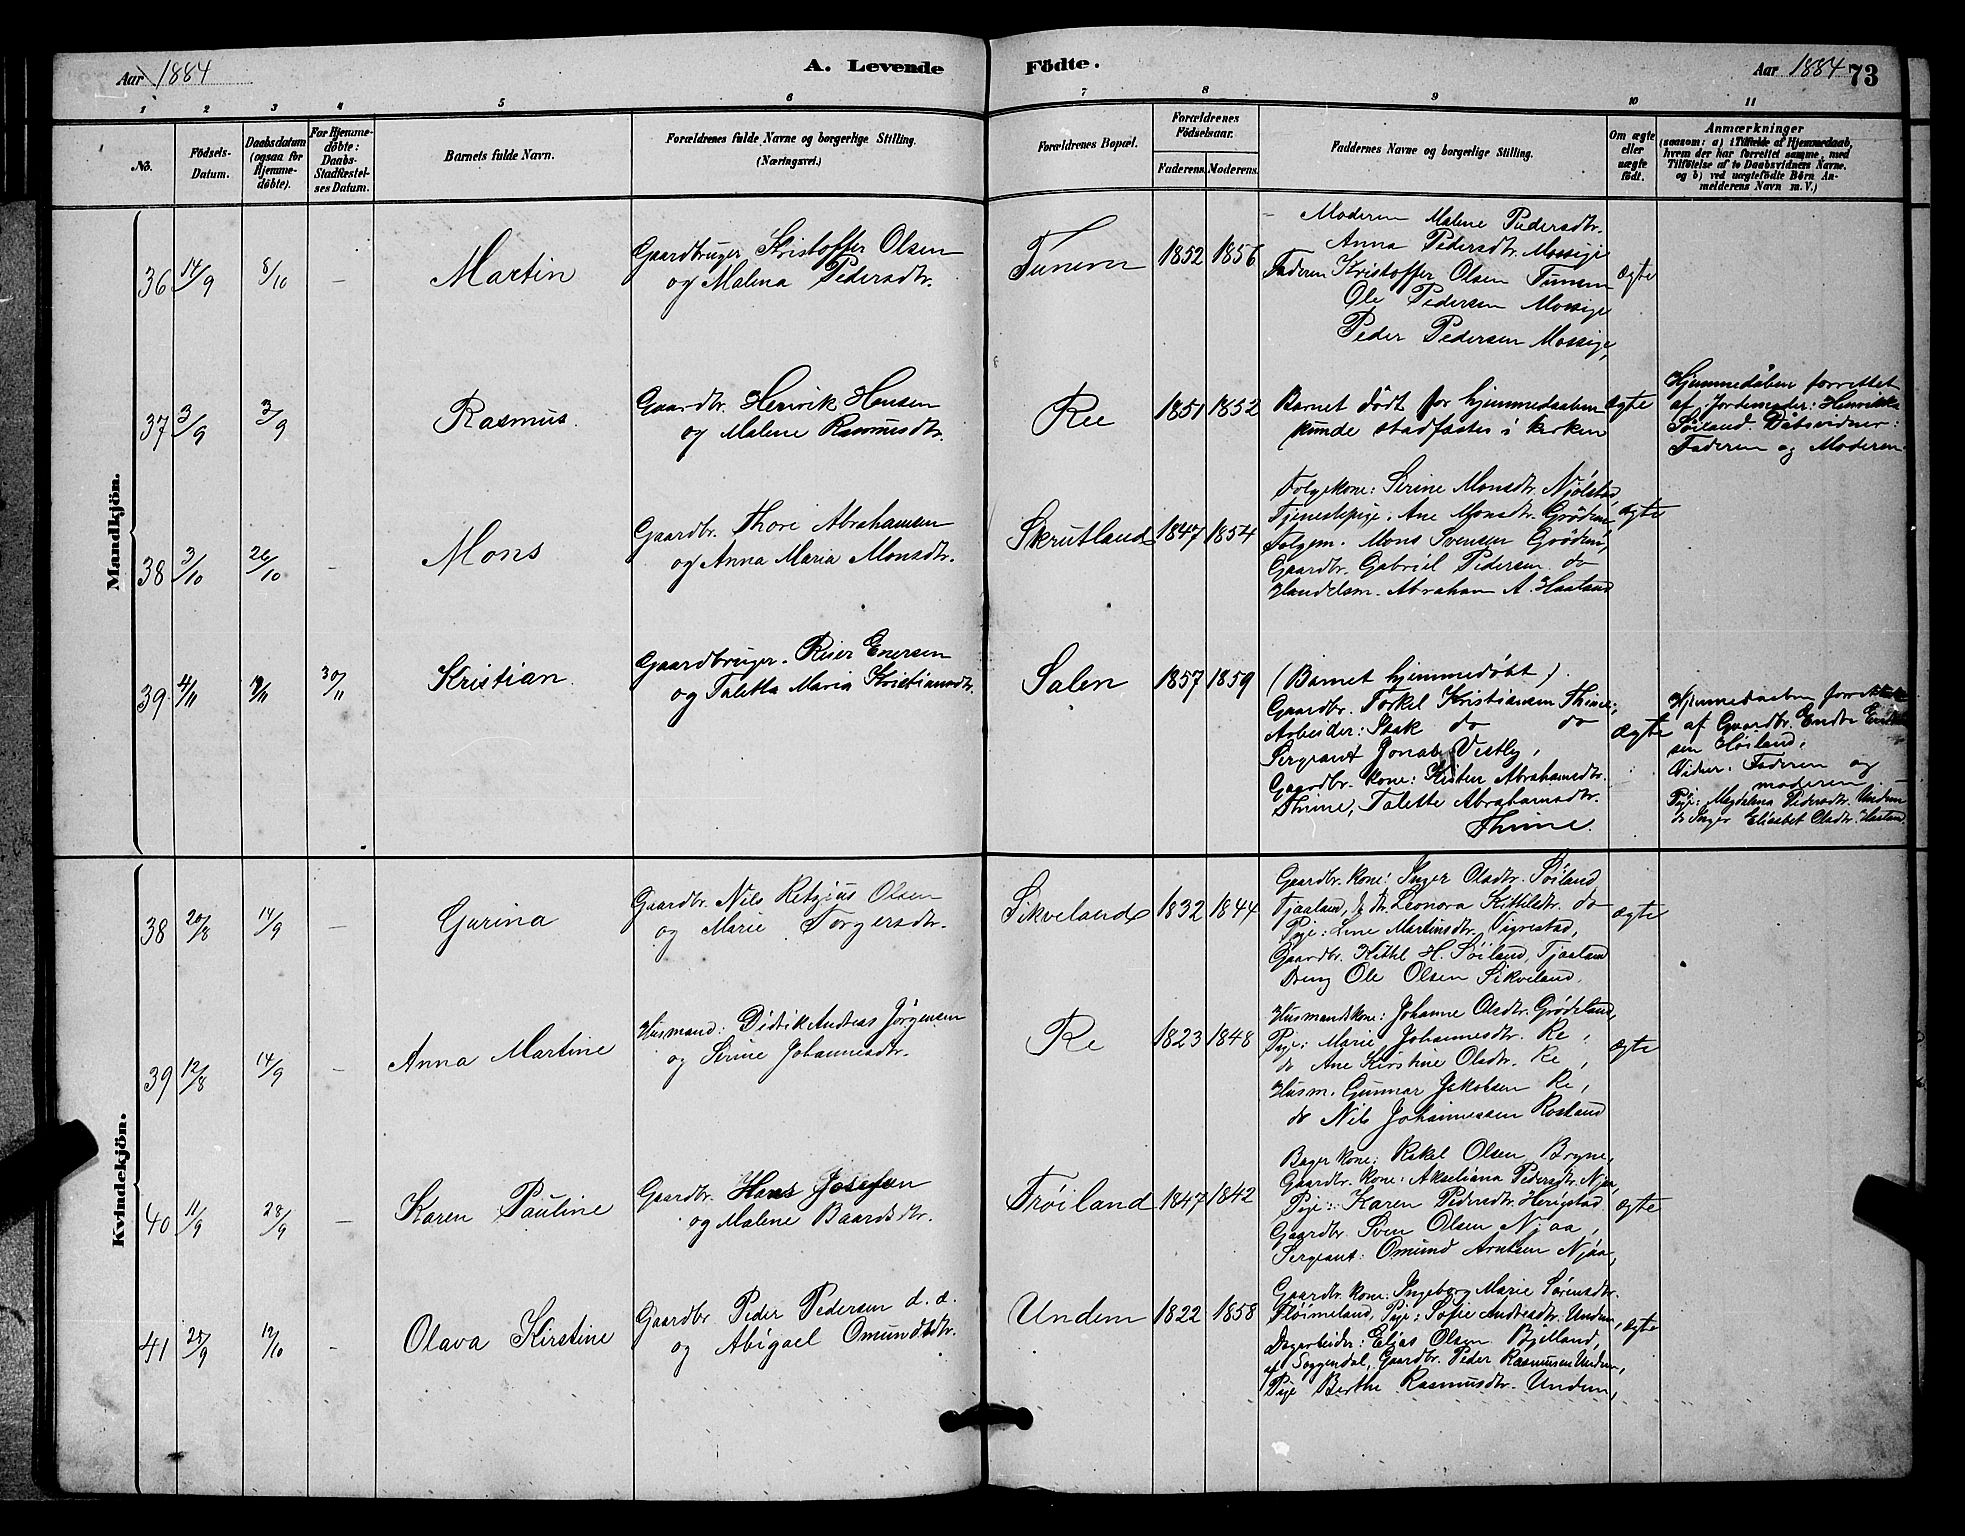 Aar 1884
A. Levende Födte.
Aar 1884 73
1 2 3 4 5 6 7 8 9 10 11
No.
Födsels-Datum.
Daabsdatum (ogsaa for Hjemmedöbte).
For Hjemmedöbte: Daabs-Stadfæstelses Datum.
Barnets fulde Navn.
Forældrenes fulde Navne og borgerlige Stilling. (Næringsvei.)
Forældrenes Bopæl.
Forældrenes Födselsaar.
Faderens. Moderens.
Faddernes Navne og borgerlige Stilling.
Om ægte eller uægte födt.
Anmærkninger
(saasom: a) i Tilfælde af Hjemmedaab, hvem der har forrettet samme, med Tilföielse af to Daabsvidners Navne. og b) ved uægtefödte Börn Anmelderens Navn m. V.)
Mandkjön.
36 14/9 8/10 — Martin
Gaardbruger Kristoffer Olsen
og Malena Pedersdtr.
Tunem 1852 1856
Moderen Malene Pedersdtr.
Anna Pedersdtr. Mossige
Faderen Kristoffer Olsen Tunem
Ole Pedersen Mossige
Peder Pedersen Mossige,
ægte
37 3/9 3/9 Rasmus.
Gaardbr. Henrik Hansen
og Malene Rasmusdtr.
Ree 1851 1852
Barnet dödt før hjemmedaaben
kunde stadfæstes i kirken
ægte
Hjemmedåben forrettet
af Jordemoder: Henrikka
Söiland. Dåbsvidner:
Faderen og Moderen.
38 3/10 26/10 — Mons
Gaardbr. Thore Abrahamsen
og Anna Maria Monsdtr.
Skrutland 1847 1854
Folgekone: Serine Monsdtr. Njölstad,
Tjenestepige, Ane Monsdtr. Grödem,
Folgem. Mons Svensen Grödem,
Gaardbr. Gabriel Pedersen do
Handelsm. Abraham A. Haaland
ægte
39 4/11 30/11 Kristian.
Gaardbruger. Reier Enersen
og Taletta Maria Kristiansdtr.
Salen 1857 1859
(Barnet hjemmedöbt).
Gaardbr. Torkel Kristiansen Thime,
Arbeider: Isak do do
Sergeant Jonas Vestly,
Gaardbr. kone: Kisten Abrahamsdtr.
Thime, Talette Abrahamsdtr.
Thime.
ægte
Hjemmedaaben forrettet
af Gaardbr. Endre
sen Höiland.
Vidner. Faderen og
moderen
Pige: Magdalena Pedersdtr. Undem
do Inger Elisabet Olsdtr.
Kvindekjön.
38 20/8 14/9 — Gurina
Gaardbr. Nils Retzius Olsen
og Marie Torgersdtr.
Sikveland 1832 1844
Gaardbr. kone: Inger Olsdtr. Söiland,
Tjaaland, Leonora Kittilsdtr. do
Pige: Line Martinsdtr. Vigrestad,
Gaardbr. Kittel H. Söiland, Tjaaland
Dreng Ole Olsen Sikveland,
ægte
39 12/8 14/9 — Anna Martine
Husmand: Didrik Andreas Jörgensen
og Serine Johannesdtr.
Re 1823 1848
Husmandskone: Johanne Olsdtr. Grödeland,
Pige: Marie Johannesdtr. Re,
do Ane Kirstine Olsdtr. Re,
Husm. Gunnar Jakobsen Re,
do Nils Johannessen Rosland
ægte
40 11/9 28/9 — Karen Pauline
Gaardbr. Hans Josefsen
og Malene Baardsdtr.
Fröiland 1847 1842
Bager kone: Rakel Olsen Bryne,
Gaardbr. kone: Akseliana Pedersdtr. Njaa,
Pige: Karen Pedersdtr. Herigstad
Gaardbr. Sven Olsen Njaa,
Sergeant: Omund Arntsen Njaa,
ægte
41 28/9 12/10 — Olava Kirstine
Gaardbr. Peder Pedersen d. æ.
og Abigael Omundsdtr.
Undem 1822 1858
Gaardbr. kone: Ingeborg Marie Sörensdtr.
Flöimeland, Pige: Sofie Andreasdtr. Undem,
Dagarbeider: Elias Olsen Bjelland,
af Soggendal, Gaardbr. Peder Rasmussen Undem,
Pige Berthe Rasmusdtr. Undem,
ægte